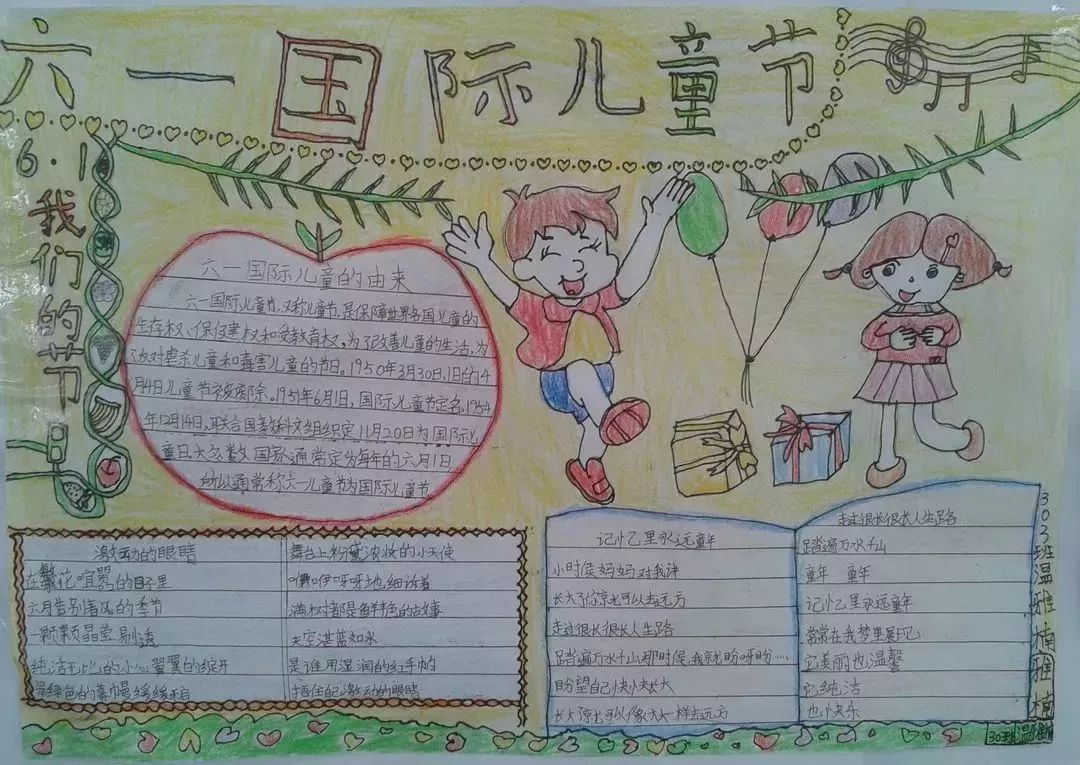 六一国际儿童节
6·1
我们的节
六一国际儿童的由来
六一国际儿童节,又称儿童节,是保障世界各国儿童的
生存权、保健权和受教育权,为了改善儿童的生活,为
了反对虐杀儿童和毒害儿童的节日。1950年3月30日,旧的4
月4日儿童节被废除。1951年6月1日,国际儿童节定名。1954
年12月14日,联合国教科文组织定11月20日为国际儿
童日大多数国家通常定为每年的六月1日
所以通常称六一儿童节为国际儿童节
激动的眼睛
在繁花喧嚣的日子里
六月告别春风的季节
一颗颗晶莹剔透
纯洁无比的小心翼翼的绽开
翠绿色的幕帽缓缓开启
舞台上粉黛浓妆的小天使
咿呀呀地细诉着
满树都是鲜艳色的故事
天空湛蓝如水
是谁用湿润的红手帕
捂住自己激动的眼睛
记忆里永远童年
小时侯妈妈对我讲
长大了你就可以去远方
走过很长很长人生路
踏遍万水千山那时侯,我就盼呀盼……
盼望自己快快长大
长大了就可以像大人一样去远方
走过很长很长人生路
踏遍万水千山
童年 童年
记忆里永远童年
常常在我梦里展现
它美丽也温馨
它纯洁
也快乐
303班温雅楠雅楠
303班温雅楠